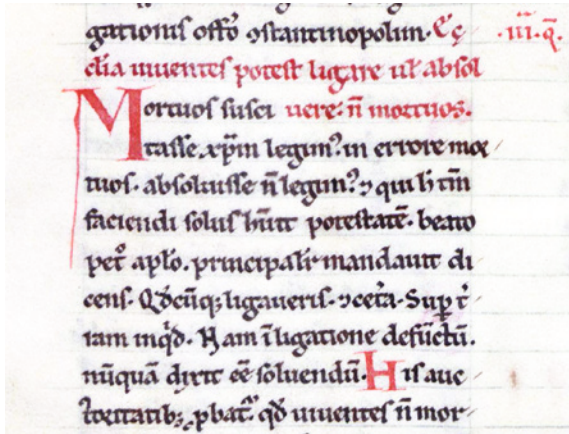 gationis offo ꝯstantinopolim. Ecę
clia uiuentes potest ligare ul absol
Mortuos susci uere. n̄ mortuos.
tasse xp̄m legim᷒. in errore mor
tuos. absoluisse n̄ legim᷒. ⁊ qui h̄ tm̄
faciendi solus hūit potestatē. beato
pet᷒ aplo. principalit᷒ mandauit di
cens. Qđcūq; ligaueris. ⁊ceta. Suꝑ t᷒
ram inqđ. Nam ī ligatione defūctū.
nūquā dixit eē soluendū. His auc
toritatib; ꝓbat᷒ qđ uiuentes n̄ mor
.iii. q̄.